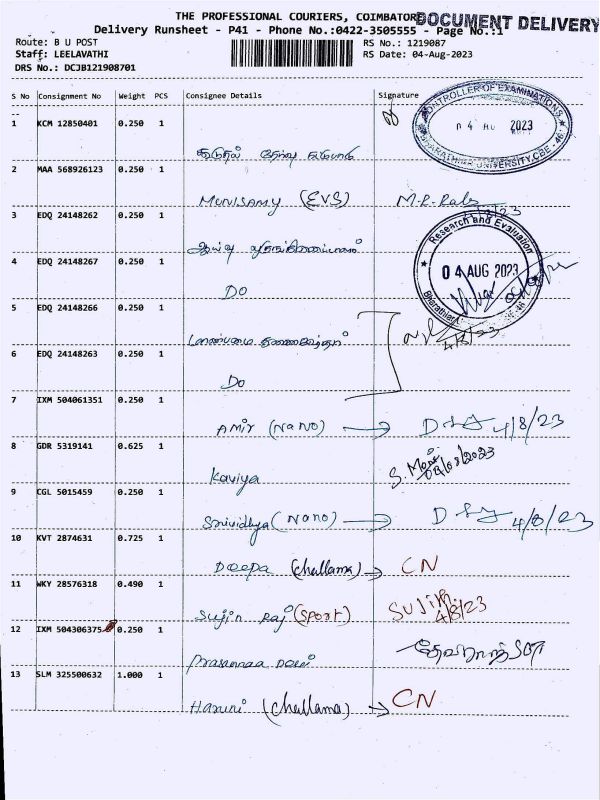 THE PROFESSIONAL COURIERS, COIMBATORE
DOCUMENT DELIVERY
Delivery Runsheet - P41 - Phone No.:0422-3505555 - Page No.:1
Route: B U POST
RS No.: 1219087
Staff: LEELAVATHI
RS Date: 04-Aug-2023
DRS No.: DCJB121908701
S No Consignment No Weight PCS Consignee Details Signature
CONTROLLER OF EXAMINATIONS
04 AU 2023
BHARATHIAR UNIVERSITY, CBE - 46
1 KCM 12850401 0.250 1
கூடுதல் தேர்வு
2 MAA 568926123 0.250 1
Munisamy (EVS)
3 EDQ 24148262 0.250 1
Research and Evaluation
04 AUG 2023
4 EDQ 24148267 0.250 1
Do
5 EDQ 24148266 0.250 1
4/8/23
6 EDQ 24148263 0.250 1
Do
7 IXM 504061351 0.250 1
Amir (Nano) → 4/8/23
8 GDR 5319141 0.625 1
Kaviya 04/08/2023
9 CGL 5015459 0.250 1
Srividhya (Nano) → 4/8/23
10 KVT 2874631 0.725 1
Deepa (challama) → CN
11 WKY 28576318 0.490 1
Sujin Raj (Sport) Sujin. 4/8/23
12 IXM 504306375 0.250 1
Prasannaa
13 SLM 325500632 1.000 1
Harini (challama) → CN